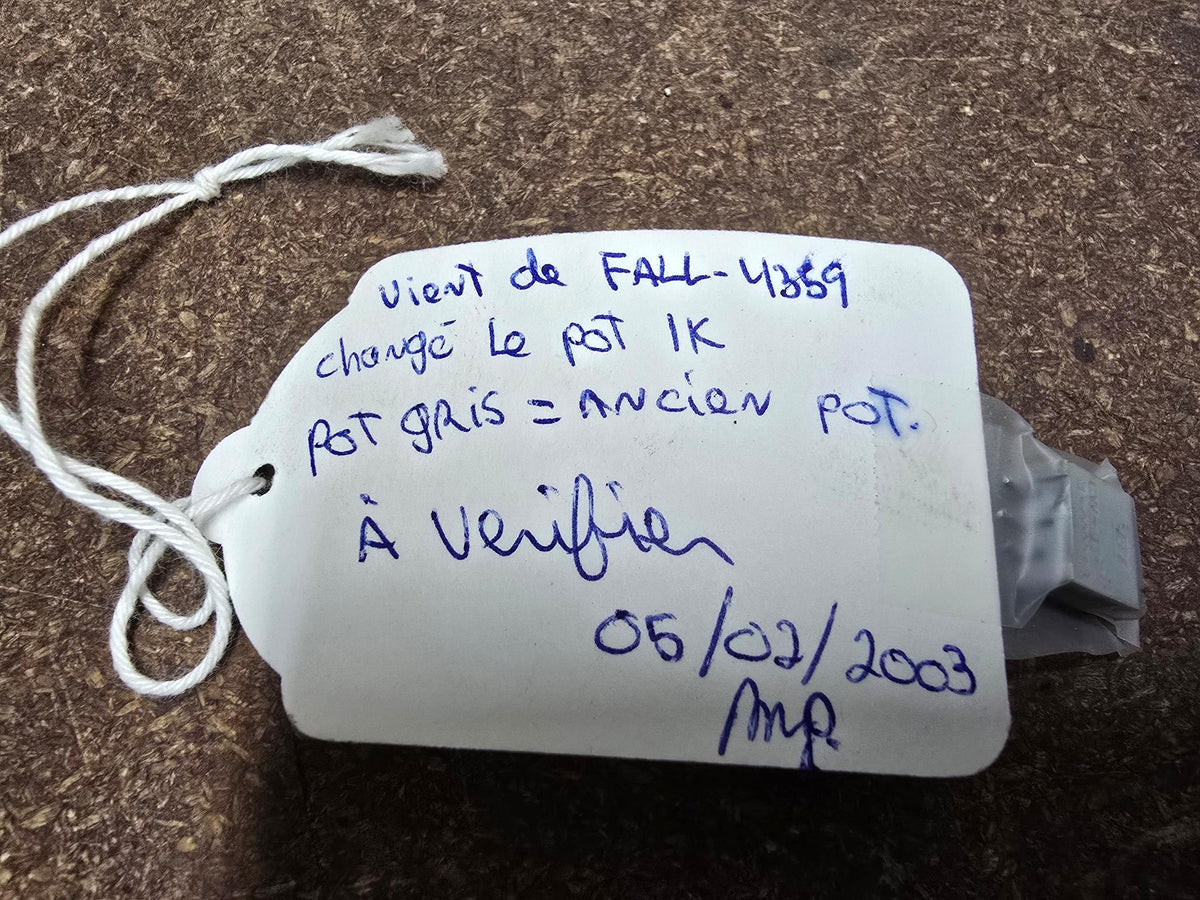 vient de FALL-4359
changé le pot 1K
pot gris = ANCIEN pot.
À Verifier
05/02/2003
MP.